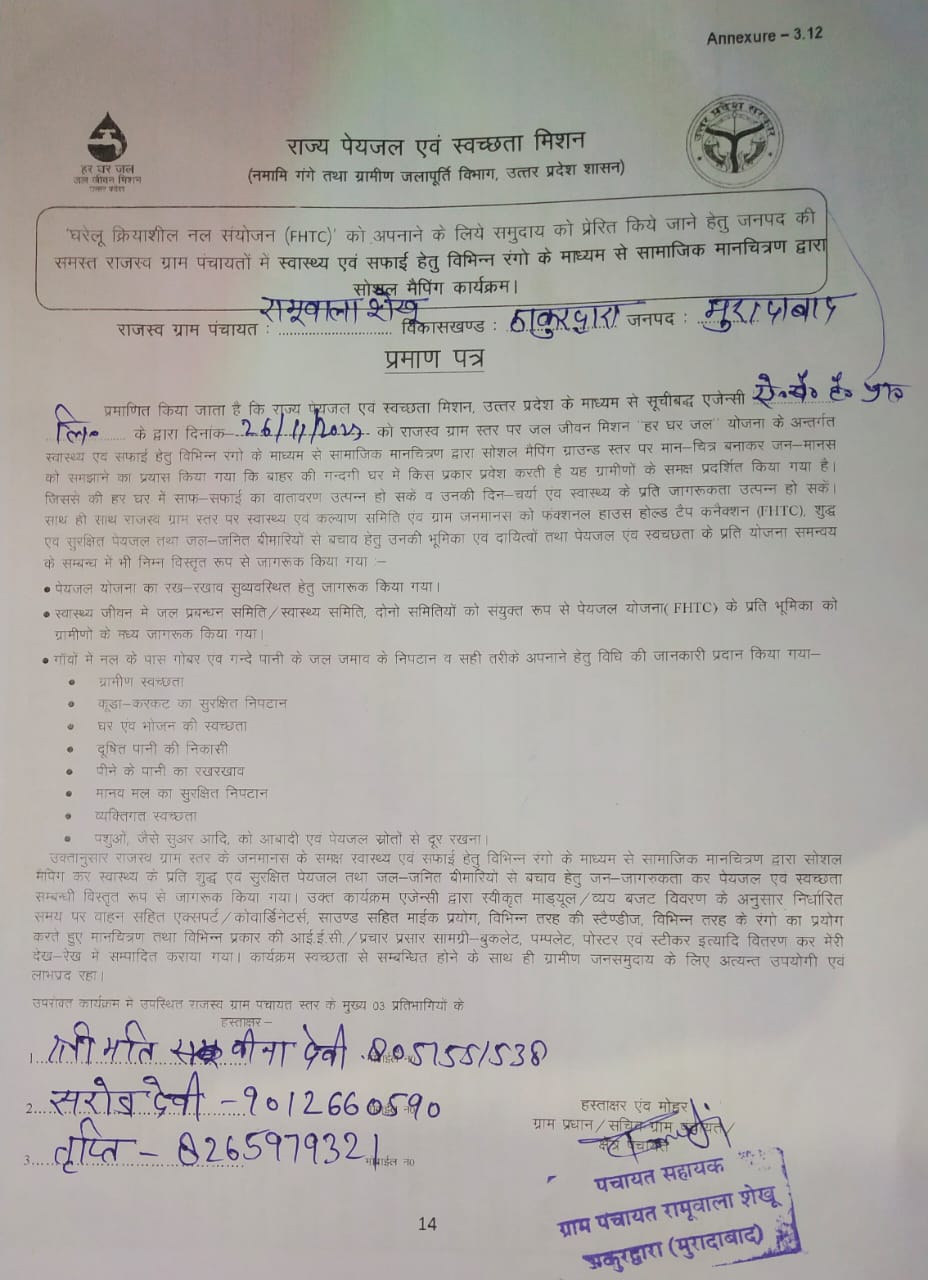 Annexure – 3.12
हर घर जल
जल जीवन मिशन
उत्तर प्रदेश
उत्तर प्रदेश सरकार
राज्य पेयजल एवं स्वच्छता मिशन
(नमामि गंगे तथा ग्रामीण जलापूर्ति विभाग, उत्तर प्रदेश शासन)
'घरेलू क्रियाशील नल संयोजन (FHTC)' को अपनाने के लिये समुदाय को प्रेरित किये जाने हेतु जनपद की
समस्त राजस्व ग्राम पंचायतों में स्वास्थ्य एवं सफाई हेतु विभिन्न रंगो के माध्यम से सामाजिक मानचित्रण द्वारा
सोशल मैपिंग कार्यक्रम।
राजस्व ग्राम पंचायत : रामूवाला शेखू विकासखण्ड : ठाकुरद्वारा जनपद : मुरादाबाद
प्रमाण पत्र
प्रमाणित किया जाता है कि राज्य पेयजल एवं स्वच्छता मिशन, उत्तर प्रदेश के माध्यम से सूचीबद्ध एजेन्सी
लि० के द्वारा दिनांक 26/11/2022 को राजस्व ग्राम स्तर पर जल जीवन मिशन "हर घर जल" योजना के अन्तर्गत
स्वास्थ्य एवं सफाई हेतु विभिन्न रंगो के माध्यम से सामाजिक मानचित्रण द्वारा सोशल मैपिंग ग्राउन्ड स्तर पर मान–चित्र बनाकर जन–मानस
को समझाने का प्रयास किया गया कि बाहर की गन्दगी घर में किस प्रकार प्रवेश करती है यह ग्रामीणों के समक्ष प्रदर्शित किया गया है।
जिससे की हर घर में साफ–सफाई का वातावरण उत्पन्न हो सकें व उनकी दिन–चर्या एंव स्वास्थ्य के प्रति जागरूकता उत्पन्न हो सकें।
साथ ही साथ राजस्व ग्राम स्तर पर स्वास्थ्य एवं कल्याण समिति एंव ग्राम जनमानस को फंक्शनल हाउस होल्ड टैप कनैक्शन (FHTC), शुद्ध
एव सुरक्षित पेयजल तथा जल–जनित बीमारियों से बचाव हेतु उनकी भूमिका एव दायित्वों तथा पेयजल एंव स्वच्छता के प्रति योजना समन्वय
के सम्बन्ध में भी निम्न विस्तृत रूप से जागरूक किया गया :–
• पेयजल योजना का रख–रखाव सुव्यवस्थित हेतु जागरूक किया गया।
• स्वास्थ्य जीवन मे जल प्रबन्धन समिति/स्वास्थ्य समिति, दोनो समितियों को संयुक्त रूप से पेयजल योजना( FHTC) के प्रति भूमिका को
ग्रामीणो के मध्य जागरूक किया गया।
• गाँवों में नल के पास गोबर एंव गन्दे पानी के जल जमाव के निपटान व सही तरीके अपनाने हेतु विधि की जानकारी प्रदान किया गया–
• ग्रामीण स्वच्छता
• कूडा–करकट का सुरक्षित निपटान
• घर एंव भोजन की स्वच्छता
• दूषित पानी की निकासी
• पीने के पानी का रखरखाव
• मानव मल का सुरक्षित निपटान
• व्यक्तिगत स्वच्छता
• पशुओं, जैसे सुअर आदि, को आबादी एव पेयजल स्रोतों से दूर रखना।
उक्तानुसार राजस्व ग्राम स्तर के जनमानस के समक्ष स्वास्थ्य एवं सफाई हेतु विभिन्न रंगो के माध्यम से सामाजिक मानचित्रण द्वारा सोशल
मैपिंग कर स्वास्थ्य के प्रति शुद्ध एवं सुरक्षित पेयजल तथा जल–जनित बीमारियो से बचाव हेतु जन–जागरुकता कर पेयजल एंव स्वच्छता
सम्बन्धी विस्तृत रूप से जागरूक किया गया। उक्त कार्यक्रम एजेन्सी द्वारा स्वीकृत माड्यूल/व्यय बजट विवरण के अनुसार निर्धारित
समय पर वाहन सहित एक्सपर्ट/कोवार्डिनेटर्स, साउण्ड सहित माईक प्रयोग, विभिन्न तरह की स्टैण्डीज, विभिन्न तरह के रंगो का प्रयोग
करते हुए मानचित्रण तथा विभिन्न प्रकार की आई.ई.सी./प्रचार प्रसार सामग्री–बुकलेट, पम्पलेट, पोस्टर एवं स्टीकर इत्यादि वितरण कर मेरी
देख–रेख में सम्पादित कराया गया। कार्यक्रम स्वच्छता से सम्बन्धित होने के साथ ही ग्रामीण जनसमुदाय के लिए अत्यन्त उपयोगी एवं
लाभप्रद रहा।
उपरोक्त कार्यक्रम में उपस्थित राजस्व ग्राम पंचायत स्तर के मुख्य 03 प्रतिभागियों के
हस्ताक्षर–
1. देवी 8057551538
2. सरोज देवी – 9012660590
3. तृप्ति – 8265979321 मोबाईल न0
हस्ताक्षर एंव मोहर
ग्राम प्रधान/सचिव ग्राम पंचायत/
क्षेत्र पंचायत
पंचायत सहायक
ग्राम पंचायत रामूवाला शेखू
ठाकुरद्वारा (मुरादाबाद)
14